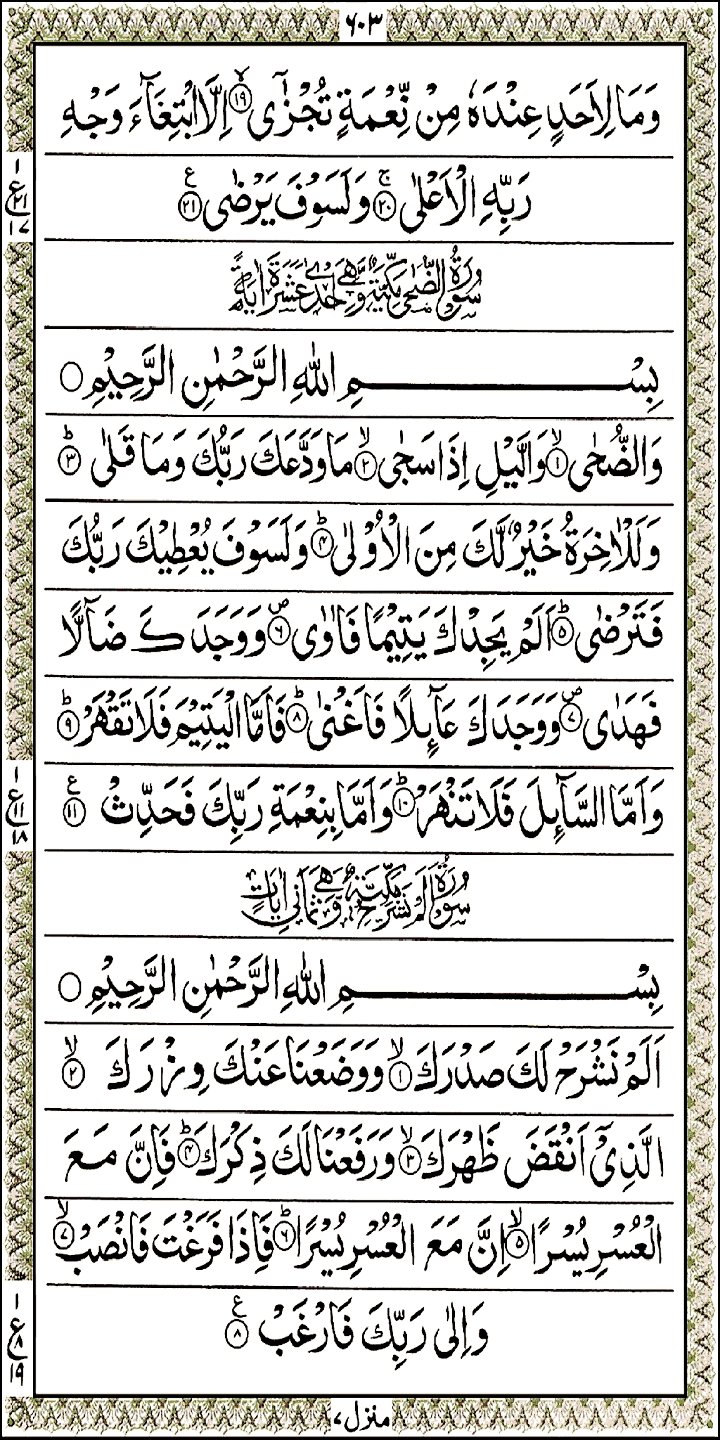 ٦٠٣
وَمَا لِاَحَدٍ عِنْدَهٗ مِنْ نِّعْمَةٍ تُجْزٰۤى ۙ﴿۱۹﴾ اِلَّا ابْتِغَآءَ وَجْهِ
رَبِّهِ الْاَعْلٰى ۚ﴿۲۰﴾ وَلَسَوْفَ يَرْضٰى ﴿۲۱﴾ع
۱
ع
۲۱
۱۷
سُوْرَةُ الضُّحٰى مَكِّيَّةٌ وَّهِيَ اِحْدٰى عَشَرَةَ اٰيَةً
بِسْمِ اللهِ الرَّحْمٰنِ الرَّحِيْمِ ○
وَالضُّحٰى ۙ﴿۱﴾ وَالَّيْلِ اِذَا سَجٰى ۙ﴿۲﴾ مَا وَدَّعَكَ رَبُّكَ وَمَا قَلٰى ؕ﴿۳﴾
وَلَلْاٰخِرَةُ خَيْرٌ لَّكَ مِنَ الْاُوْلٰى ؕ﴿۴﴾ وَلَسَوْفَ يُعْطِيْكَ رَبُّكَ
فَتَرْضٰى ؕ﴿۵﴾ اَلَمْ يَجِدْكَ يَتِيْمًا فَاٰوٰى ۪﴿۶﴾ وَوَجَدَكَ ضَآلًّا
فَهَدٰى ۪﴿۷﴾ وَوَجَدَكَ عَآئِلًا فَاَغْنٰى ؕ﴿۸﴾ فَاَمَّا الْيَتِيْمَ فَلَا تَقْهَرْ ؕ﴿۹﴾
وَاَمَّا السَّآئِلَ فَلَا تَنْهَرْ ؕ﴿۱۰﴾ وَاَمَّا بِنِعْمَةِ رَبِّكَ فَحَدِّثْ ﴿۱۱﴾ع
۱
ع
۱۱
۱۸
سُوْرَةُ اَلَمْ نَشْرَحْ مَكِّيَّةٌ وَّهِيَ ثَمَانِيْ اٰيَاتٍ
بِسْمِ اللهِ الرَّحْمٰنِ الرَّحِيْمِ ○
اَلَمْ نَشْرَحْ لَكَ صَدْرَكَ ۙ﴿۱﴾ وَوَضَعْنَا عَنْكَ وِزْرَكَ ۙ﴿۲﴾
الَّذِيْۤ اَنْقَضَ ظَهْرَكَ ۙ﴿۳﴾ وَرَفَعْنَا لَكَ ذِكْرَكَ ؕ﴿۴﴾ فَاِنَّ مَعَ
الْعُسْرِ يُسْرًا ۙ﴿۵﴾ اِنَّ مَعَ الْعُسْرِ يُسْرًا ؕ﴿۶﴾ فَاِذَا فَرَغْتَ فَانْصَبْ ۙ﴿۷﴾
وَاِلٰى رَبِّكَ فَارْغَبْ ﴿۸﴾ع
۱
ع
۸
۱۹
منزل ۷